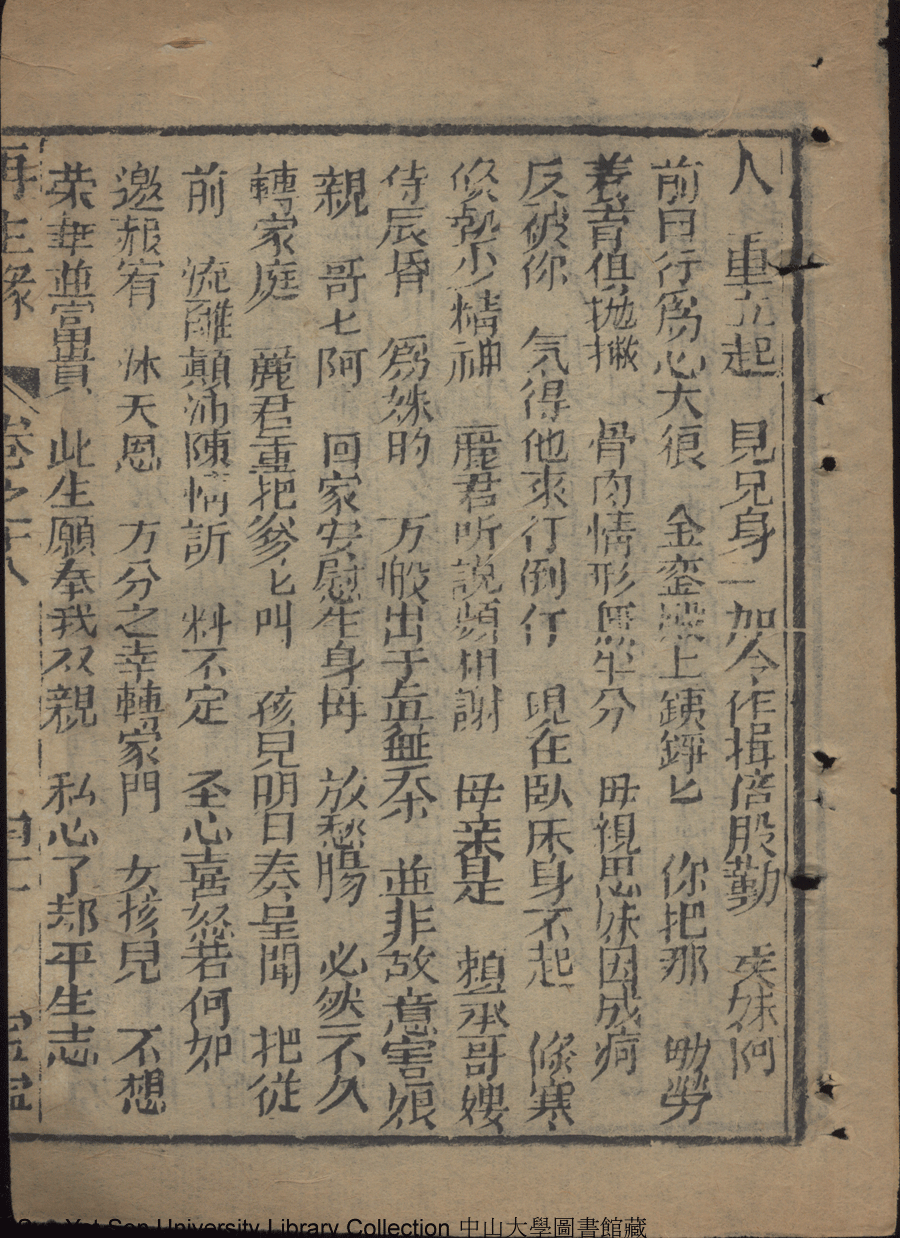 人　重立起　見兄身　加今作揖倍殷勤　賢妹阿
前日行為心大很　金鑾殿上鉄錚匕　你把那　劬勞
養育俱抛撇　骨肉情形無半分　母視思妹因成病
反破你　気得他來行倒行　現在臥床身不起　倏寒
倏熱少精神　麗君听說頻相謝　母亲是　賴承哥嫂
侍辰昏　為妹的　万般出于岳無奈　並非故意害娘
親　哥匕阿　回家安慰生身母　放愁腸　必然不久
轉家庭　麗君重把爹匕叫　孩兒明日奏呈聞　把從
前　流離顛沛陳情訴　料不定　圣心喜怒若何如
邀赧宥　休天恩　万分之幸轉家門　女孩兒　不想
荣華並富貴　此生願奉我双親　私心了却平生志
再生縁　卷之十八
Sun Yat-Sen University Library Collection 中山大學圖書館藏